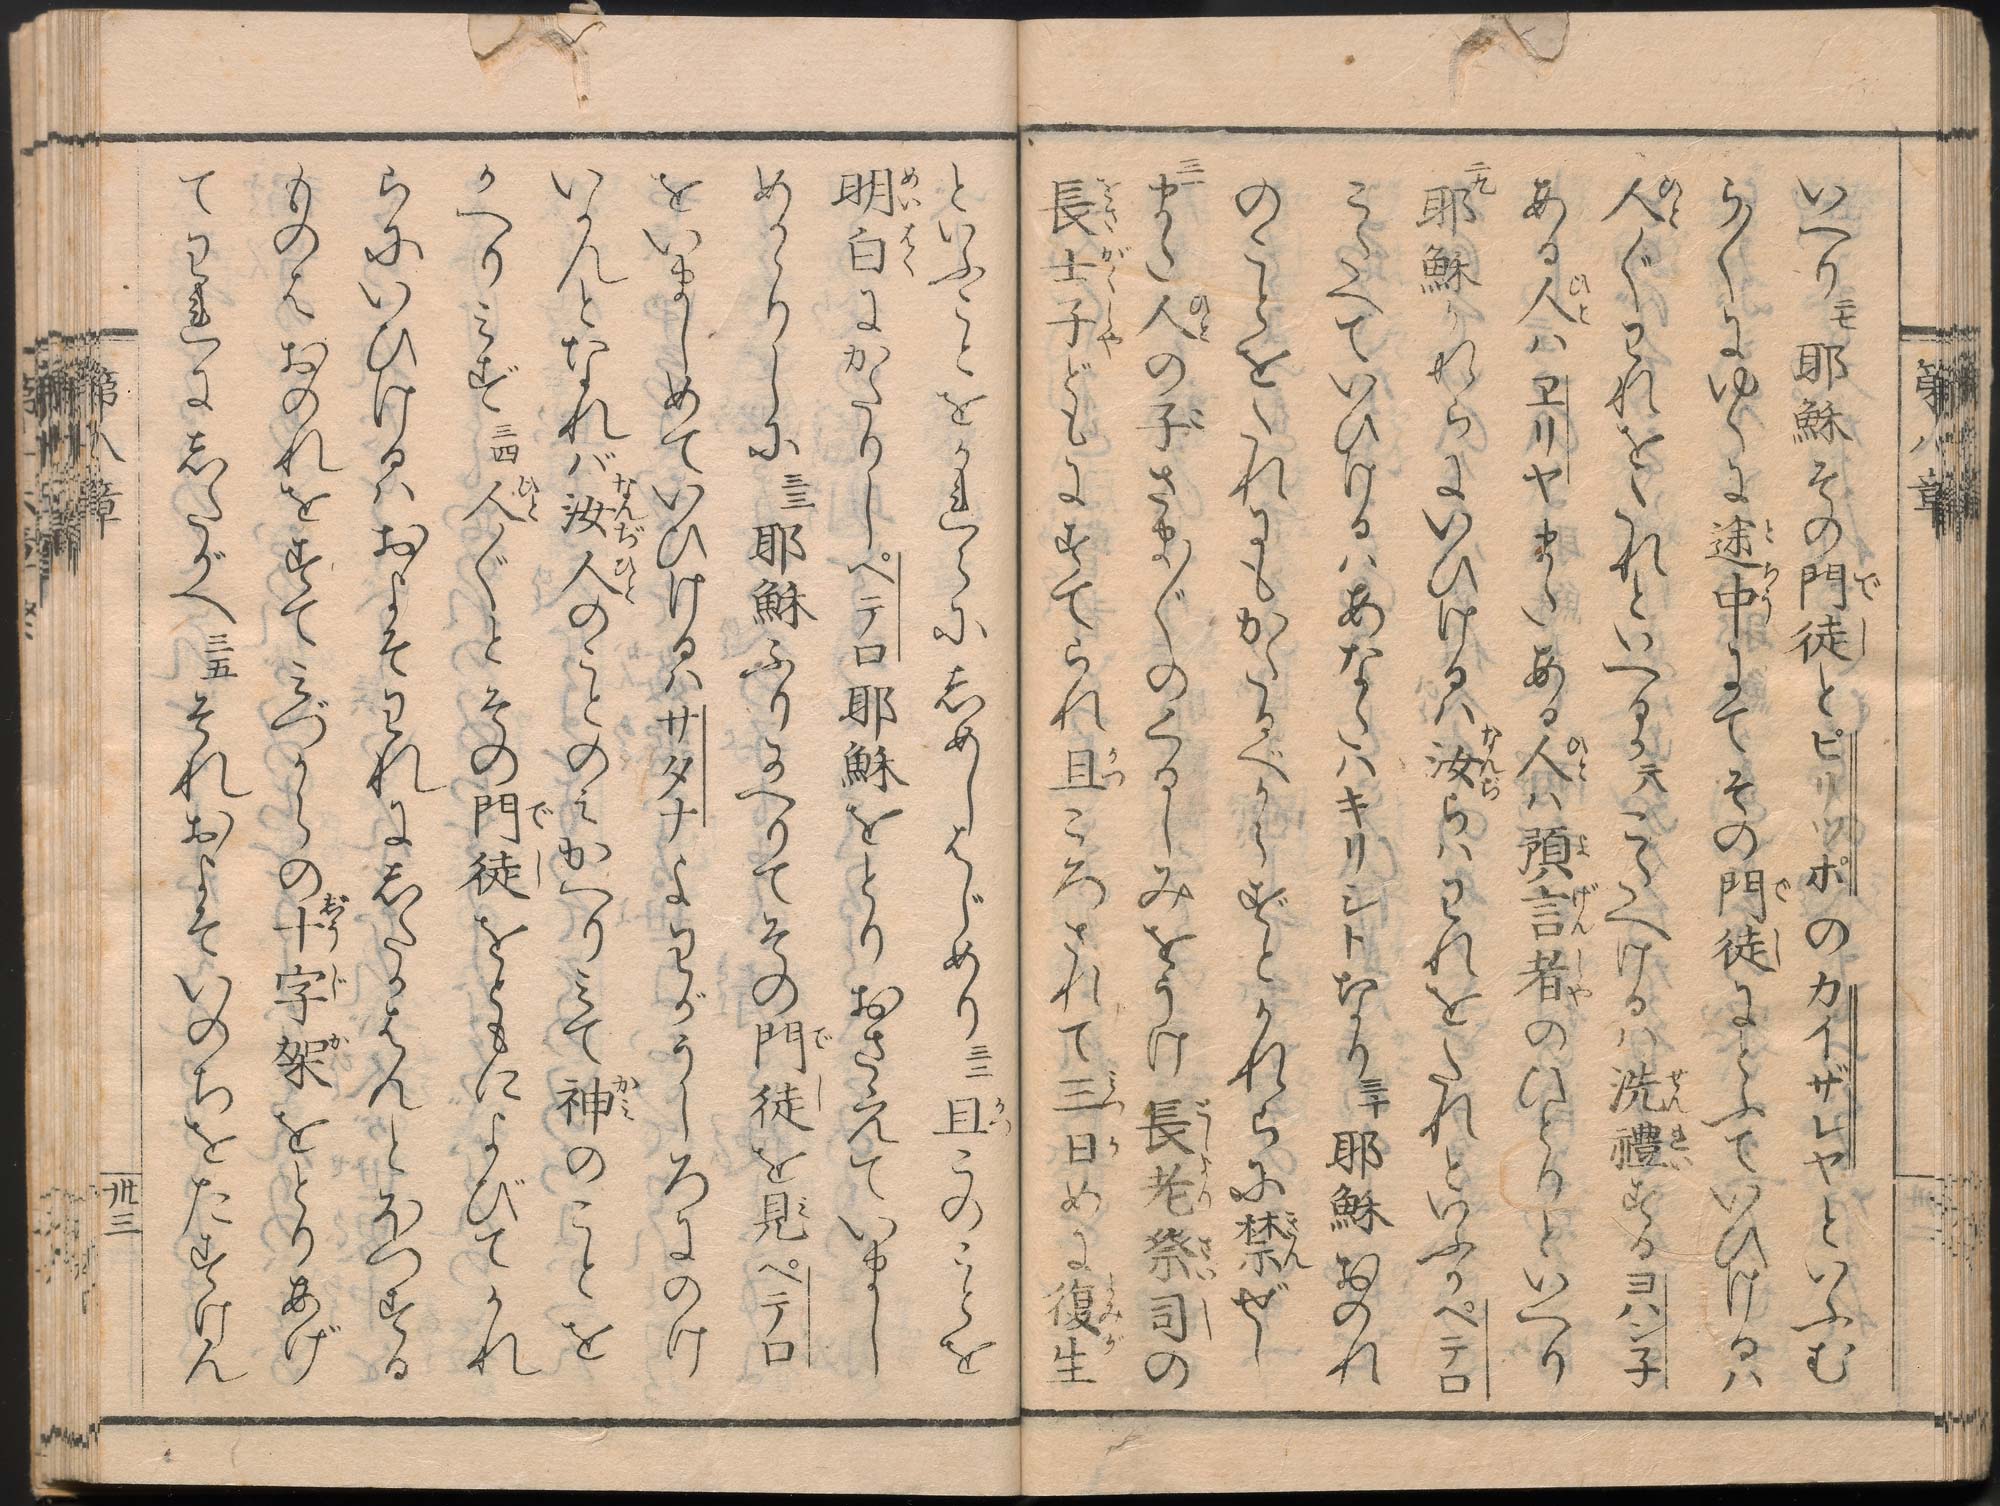 いへり二七耶穌その門徒とピリツポのカイザレヤといふむ
らへにゆくに途中にてその門徒にとふていひけるハ
人〲われをたれといへるか二八こたへけるハ洗禮するヨハン子
ある人ハヱリヤまたある人ハ預言者のひとりといへり
二九耶穌かれらにいひけるハ汝らハわれをたれといふかペテロ
こたへていひけるハあなたハキリシト なり三十耶穌おのれ
のことをたれにもかたるべからずとかれらに禁ぜし
三一また人の子さま〲のくるしみをうけ長老祭司の
長士子どもにすてられ且ころされて三日めに復生
といふことをかれらにしめしはじめり三二且このことを
明白にかたりしペテロ耶穌をとりおさえていまし
めかゝりしに三三耶穌ふりかへりてその門徒を見ペテロ
をいましめていひけるハサタナよわがうしろにのけ
いかんとなれバ汝人のことのみかへりみて神のことを
かへりみず三四人〲とその門徒をともによびてかれ
らにいひけるハおよそわれにしたがはんとほつする
ものはおのれをすてみづからの十字架をとりあげ
てわれにしたがへ三五それおよそいのちをたすけん
第八章
卅三
第八章